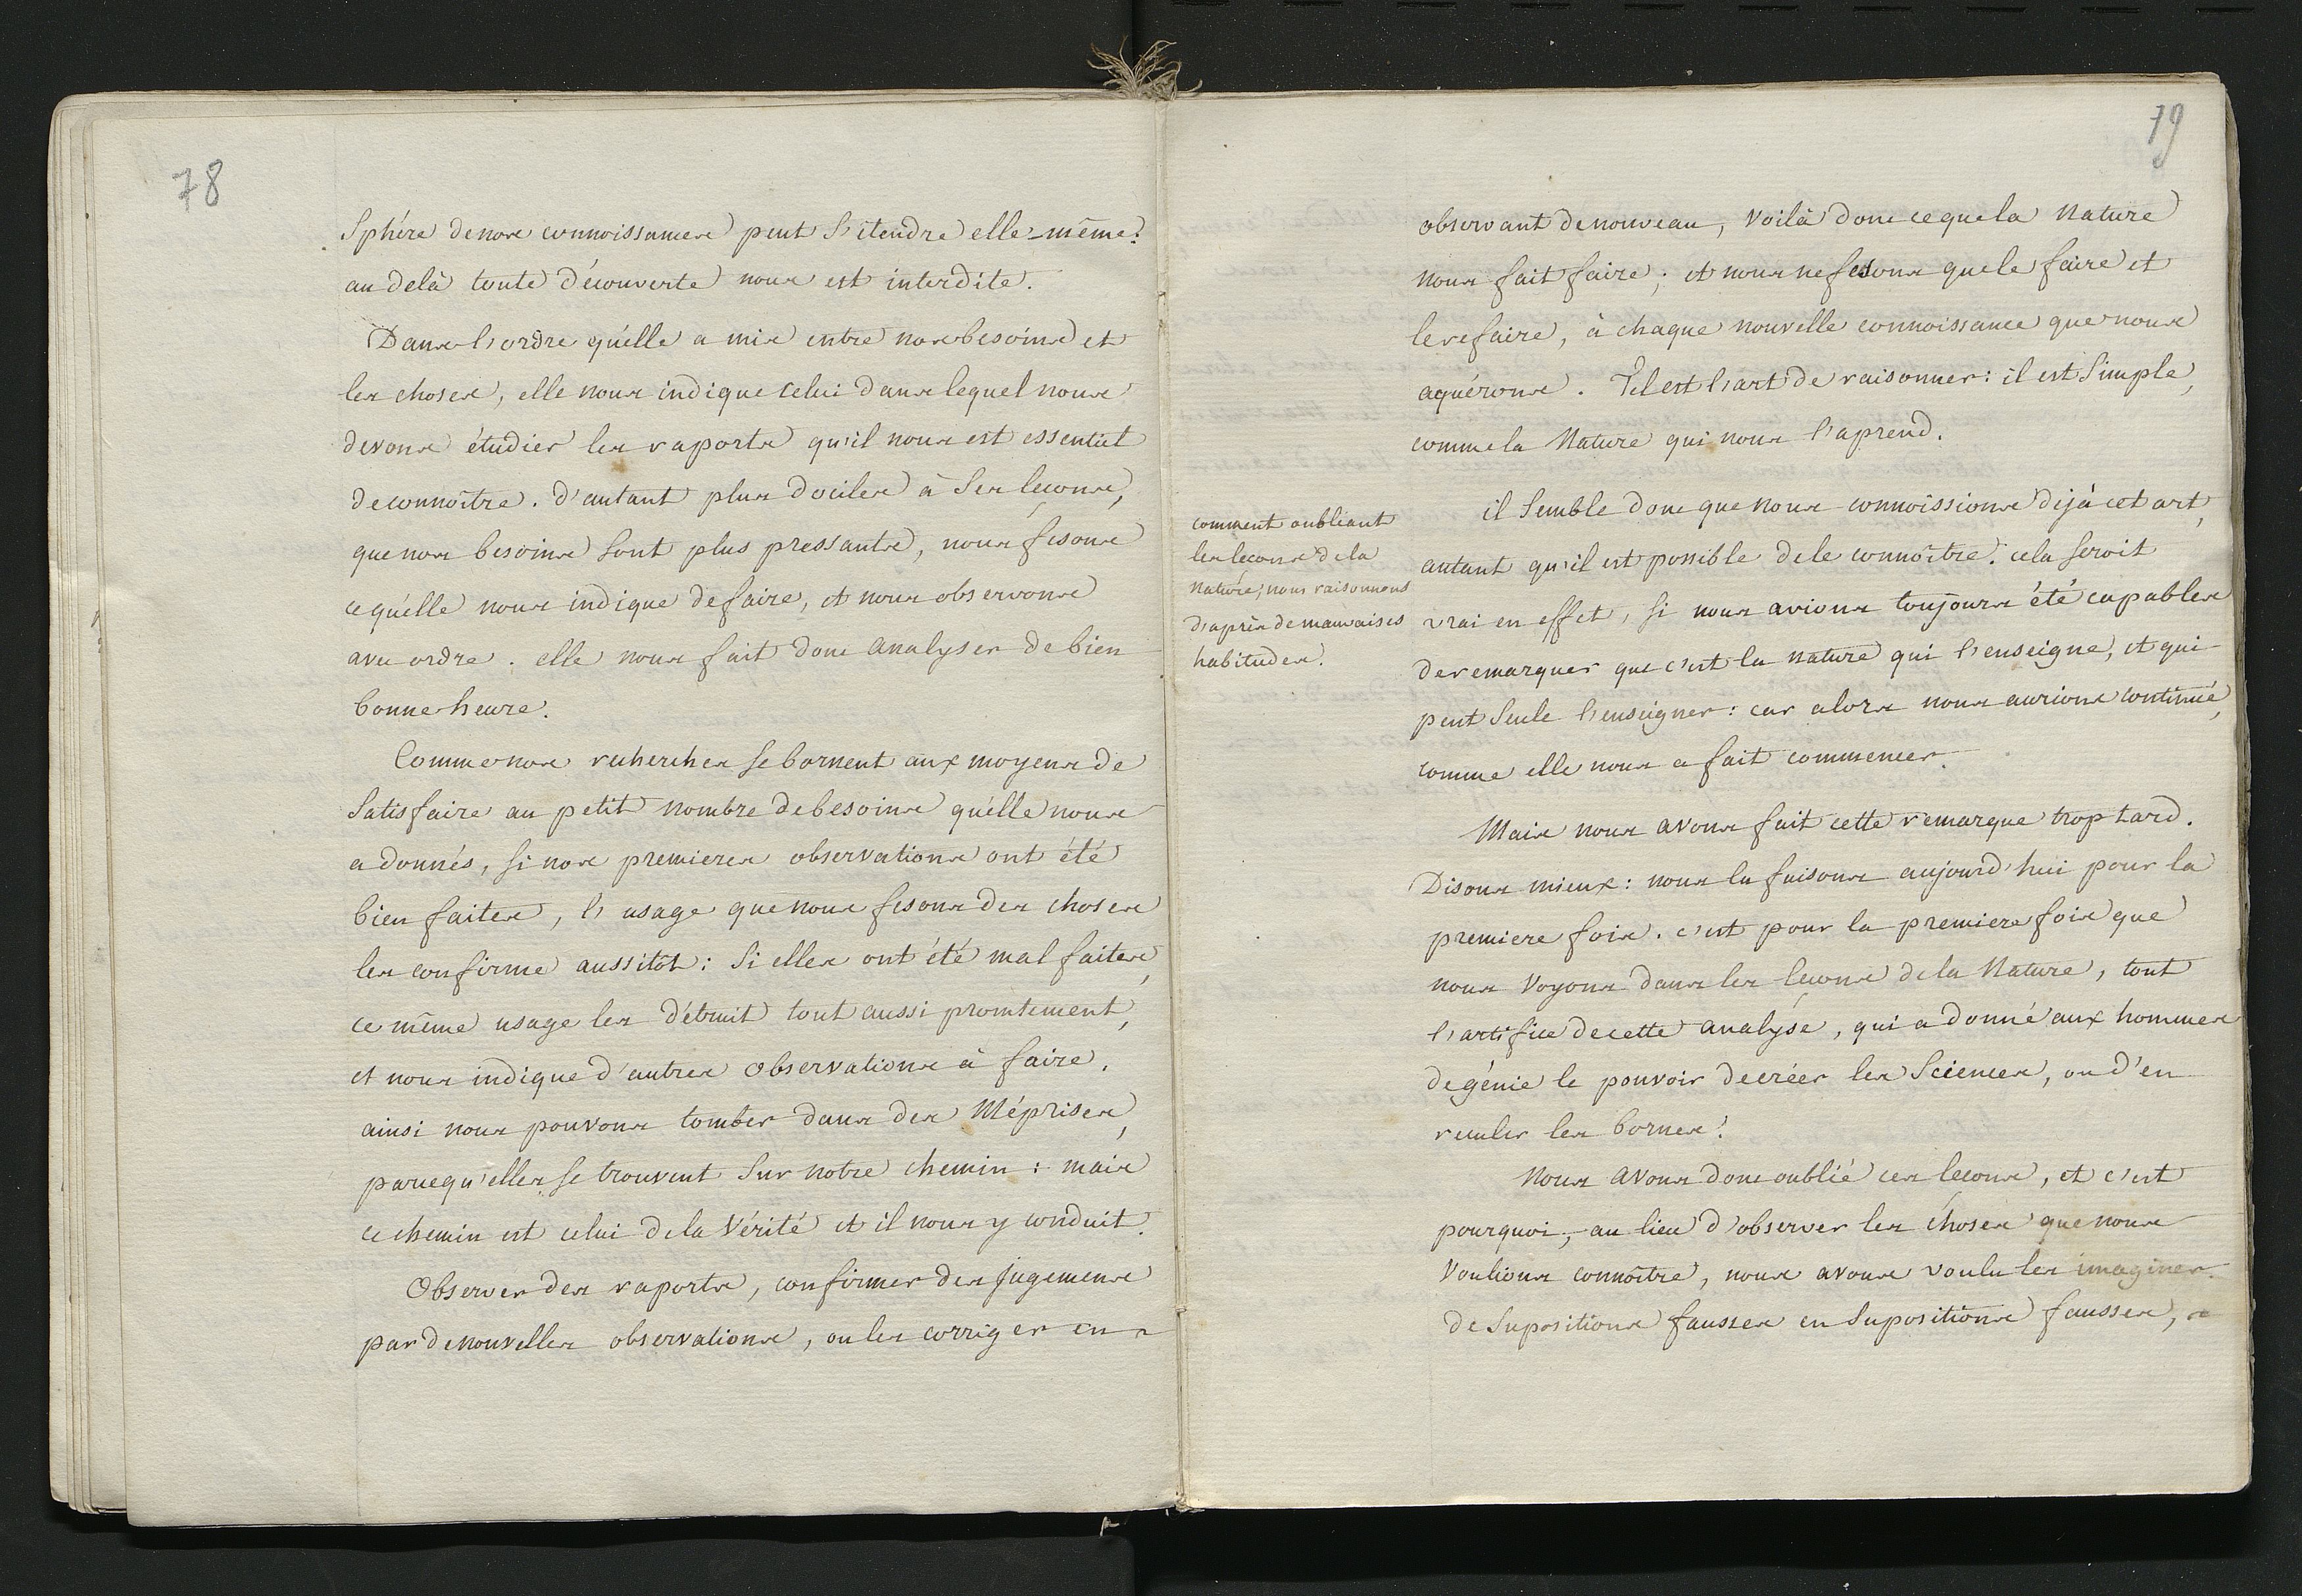 78
Sphére de nos connoissances peut s'étendre elle-même:
au delà toute découverte nous est interdite.
Dans l'ordre qu'elle a mis entre nos besoins et
les choses, elle nous indique celui dans lequel nous
devons étudier les raports qu'il nous est essentiel
de connoître. d'autant plus dociles à ses leçons,
que nos besoins sont plus pressants, nous fesons
ce qu'elle nous indique de faire, et nous observons
avec ordre. elle nous fait donc analyser de bien
bonne heure.
Comme nos recherches se bornent aux moyens de
satisfaire au petit nombre de besoins qu'elle nous
a donnés, si nos premieres observations ont été
bien faites, l'usage que nous fesons des choses
les confirme aussitôt: si elles ont été mal faites,
ce même usage les détruit tout aussi promtement,
et nous indique d'autres observations à faire.
ainsi nous pouvons tomber dans des Méprises,
parcequ'elles se trouvent sur notre chemin: mais
ce chemin est celui de la Vérité et il nous y conduit.
Observer des raports, confirmer des jugemens
par de nouvelles observations, ou les corriger en
79
observant de nouveau, voilà donc ce que la Nature
nous fait faire; et nous ne fesons que le faire et
le refaire, à chaque nouvelle connoissance que nous
aquérons. Tel est l'art de raisonner: il est simple,
comme la Nature qui nous l'aprend.
comment oubliant
les leçons de la
nature, nous raisonnons
d'après de mauvaises
habitudes.
il semble donc que nous connoissions déjà cet art,
autant qu'il est possible de le connoître. cela seroit
vrai en effet, si nous avions toujours été capables
de remarquer que c'est la nature qui l'enseigne, et qui
peut seule l'enseigner: car alors nous aurions continué,
comme elle nous a fait commencer.
Mais nous avons fait cette remarque trop tard.
Disons mieux: nous la faisons aujourd'hui pour la
premiere fois. c'est pour la premiere fois que
nous voyons dans les leçons de la Nature, tout
l'artifice de cette analyse, qui a donné aux hommes
de génie le pouvoir de créer les Sciences, ou d'en
reculer les bornes.
Nous avons donc oublié ces leçons, et c'est
pourquoi, au lieu d'observer les choses que nous
voulions connoître, nous avons voulu les imaginer.
de supositions fausses en supositions fausses,